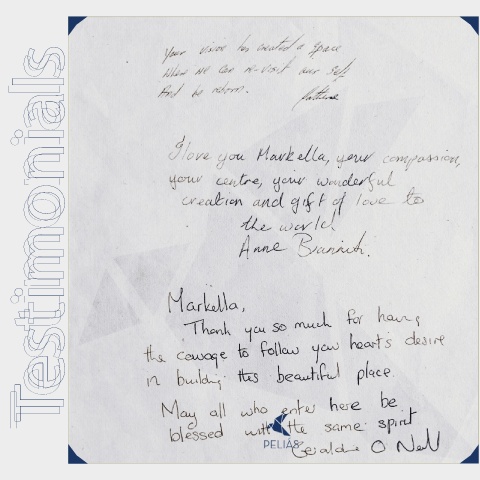 Testimonials
Your vision has created a space
Where we can re-visit our self
And be reborn.
I love you Markella, your compassion,
your centre, your wonderful
creation and gift of love to
the world!
Anne
Markella,
Thank you so much for having
the courage to follow your heart's desire
in building this beautiful place.
May all who enter here be
blessed with the same spirit
PELIAS
Geraldine O Neill